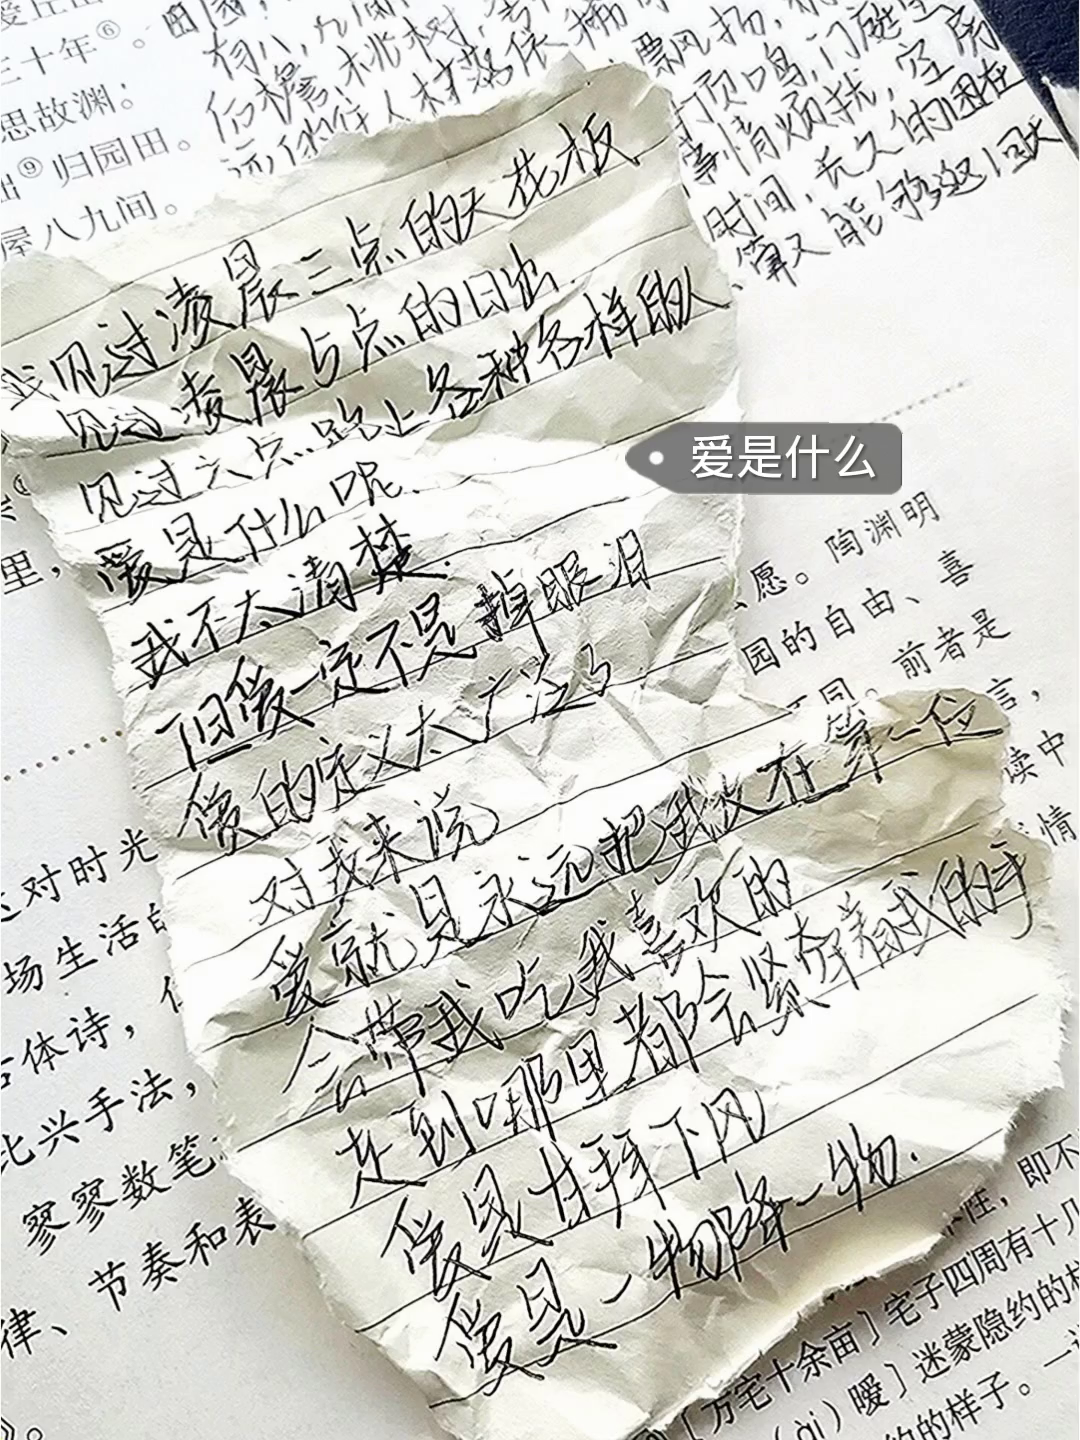 三十年⑥。
思故渊；
⑨归园田。
屋八九间。
我见过凌晨三点的天花板
见过凌晨5点的日出
见过六点路上各种各样的人
爱是什么呢.
我不太清楚.
但爱一定不是掉眼泪
爱的定义太广泛了
对我来说
爱就是永远把我放在第一位
会带我吃我喜欢的
走到哪里都会紧牵着我的手
爱是甘拜下风
爱是一物降一物.
爱是什么
愿。陶渊明
园的自由、喜
同。前者是
言，
读中
情
里，
对时光
场生活的
古体诗，
比兴手法，
寥寥数笔
节奏和表
律、
》。
性，即不
〔方宅十余亩〕宅子四周有十几
（ài）暧〕迷蒙隐约的样
约的样子。一说
时间，长久的困在
算又能够返回大
事情烦扰，空房
门庭